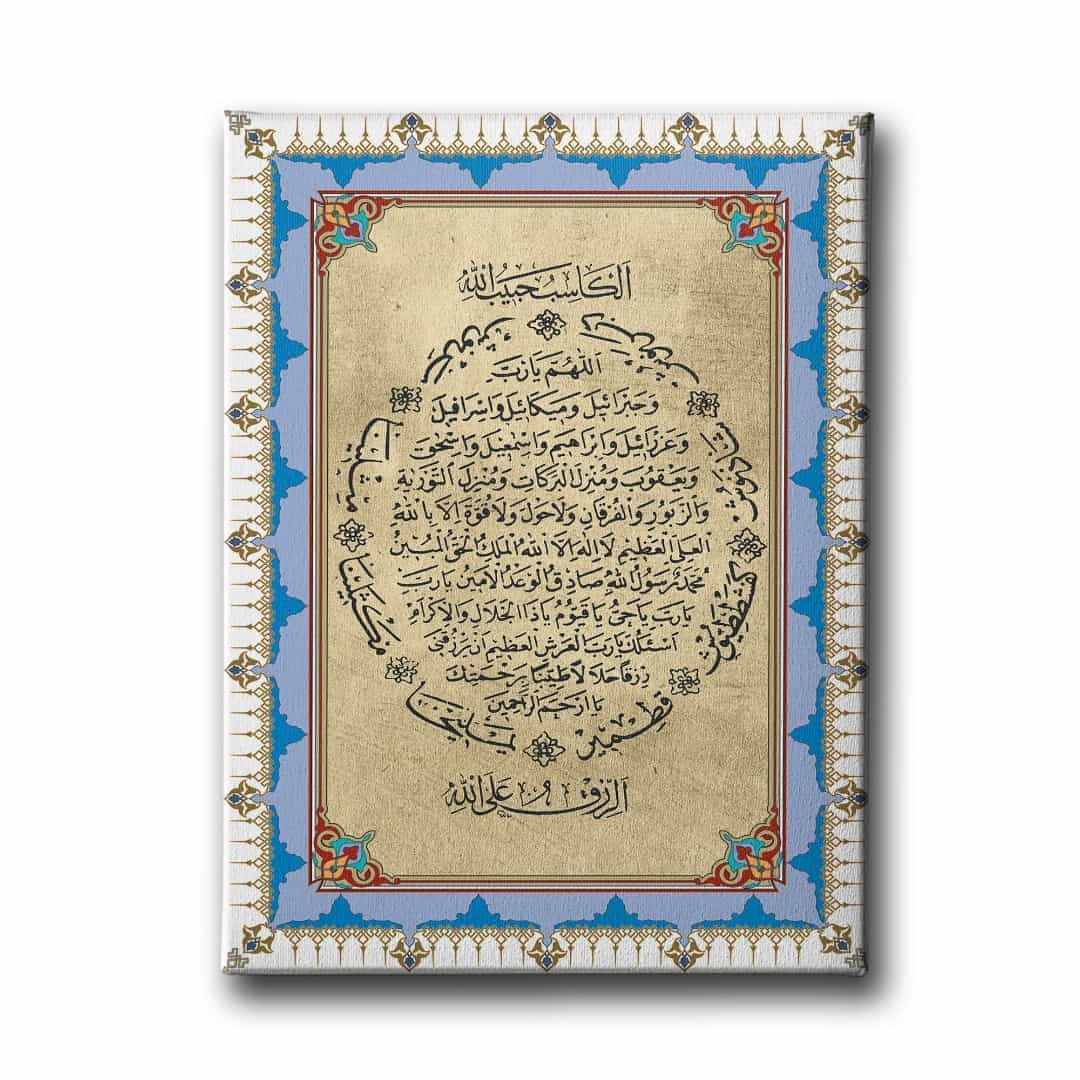 اَلْكَاسِبُ حَبِيبُ اللّٰهِ
اَللّٰهُمَّ يَارَبِّ
وَجَبْرَائِيلَ وَمِيكَائِيلَ وَاِسْرَافِيلَ
وَعَزْرَائِيلَ وَاِبْرَاهِيمَ وَاِسْمٰعِيلَ وَاِسْحٰقَ
وَيَعْقُوبَ وَمُنْزِلَ الْبَرَكَاتِ وَمُنْزِلَ التَّوْرٰيةِ
وَالزَّبُورِ وَالْفُرْقَانِ وَلَاحَوْلَ وَلَا قُوَّةَ اِلَّا بِاللّٰهِ
الْعَلِىِّ الْعَظِيمِ لَا اِلٰهَ اِلَّا اللّٰهُ الْمَلِكُ الْحَقُّ الْمُبِينُ
مُحَمَّدٌ رَسُولُ اللّٰهِ صَادِقُ الْوَعْدِ الْاَمِينُ يَارَبِّ
يَارَبِّ يَاحَىُّ يَاقَيُّومُ يَاذَا الْجَلَالِ وَالْاِكْرَامِ
اَسْئَلُكَ يَارَبَّ الْعَرْشِ الْعَظِيمِ اَنْ يَرْزُقَنِى
رِزْقًا حَلَالًا طَيِّبًا بِرَحْمَتِكَ
يَا اَرْحَمَ الرَّاحِمِينَ
يمليخا
مكثلينا
مثلينا
مرنوش
شاذنوش
كفشططيوش
قطمير
اَلرِّزْقُ عَلَى اللّٰهِ